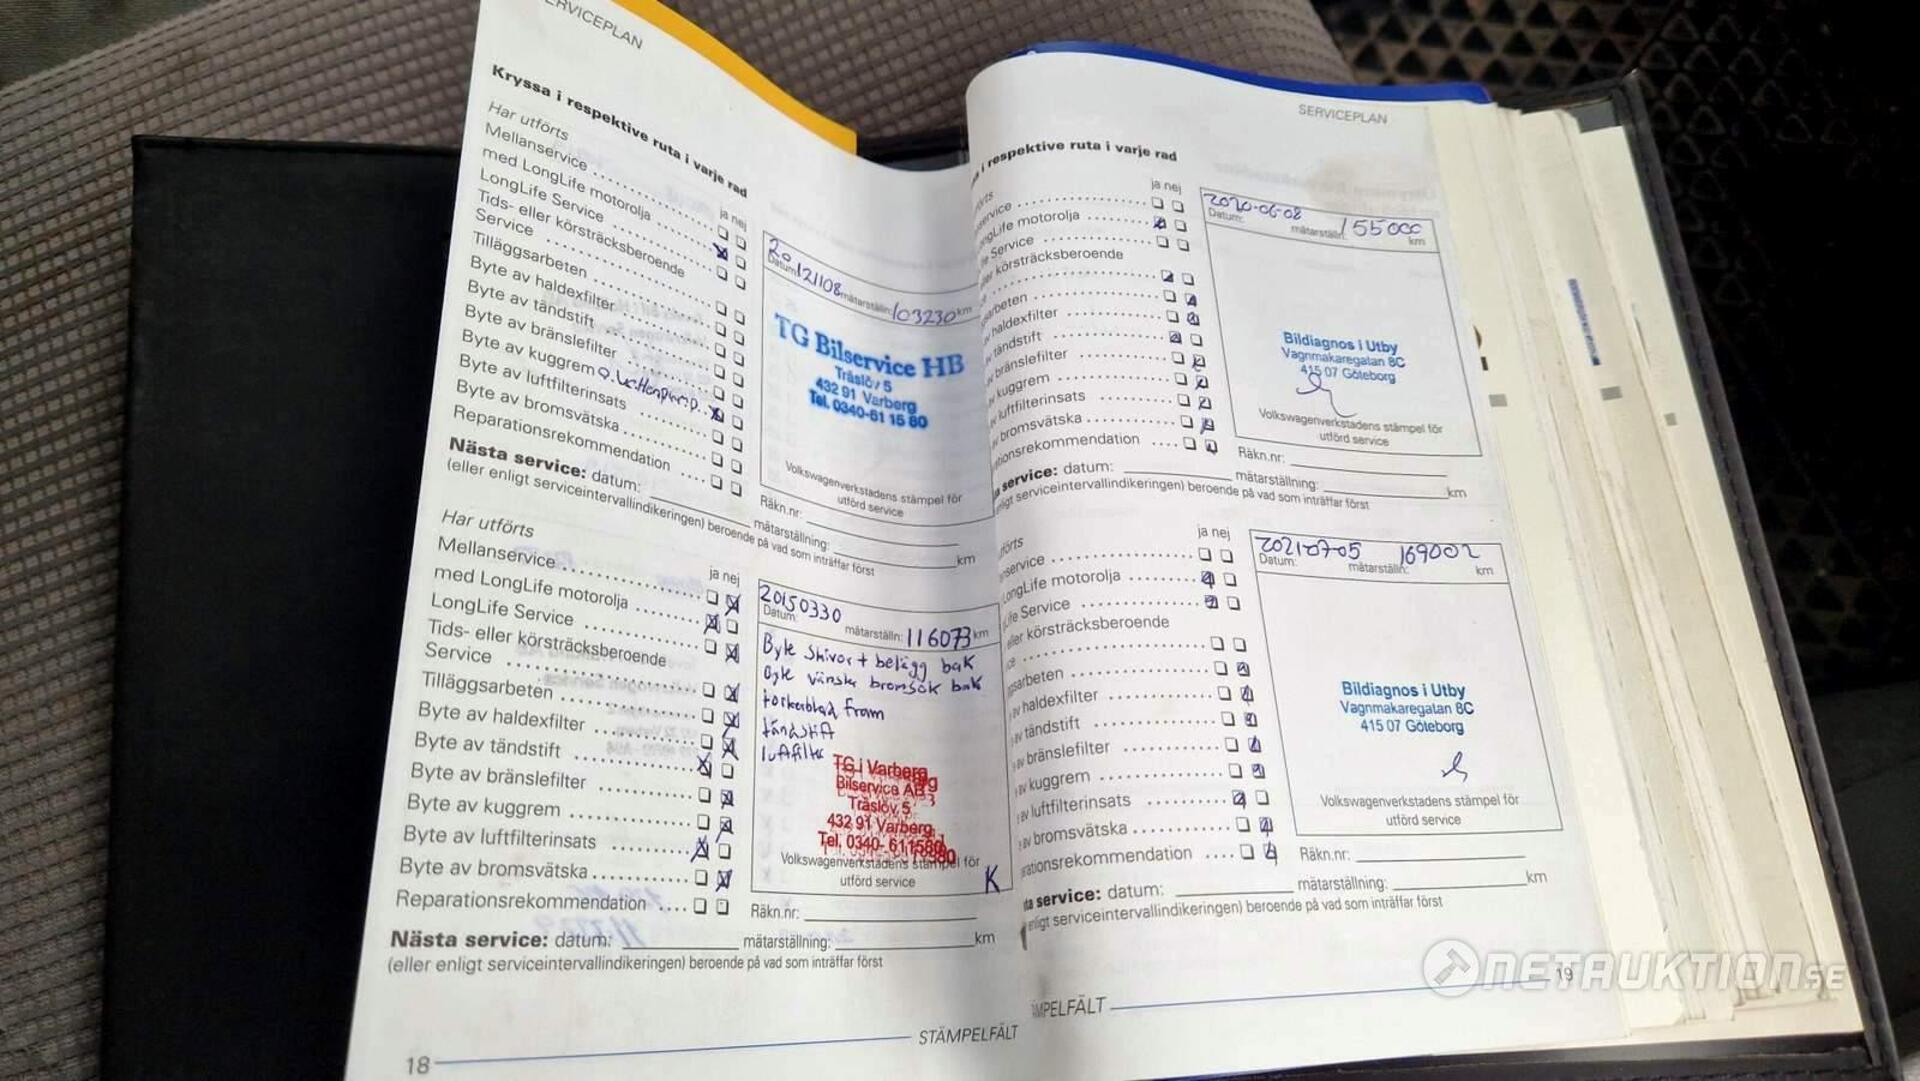 SERVICEPLAN
Kryssa i respektive ruta i varje rad
Har utförts
ja nej
Mellanservice
med LongLife motorolja
LongLife Service
Tids- eller körsträcksberoende
Service
Tilläggsarbeten
Byte av haldexfilter
Byte av tändstift
Byte av bränslefilter
Byte av kuggrem
Byte av luftfilterinsats
Byte av bromsvätska
Reparationsrekommendation
20121108 103230 km
Datum: mätarställn:
TG Bilservice HB
Träslöv 5
432 91 Varberg
Tel. 0340-61 15 80
Volkswagenverkstadens stämpel för
utförd service
Räkn.nr:
Nästa service: datum: mätarställning: km
(eller enligt serviceintervallindikeringen) beroende på vad som inträffar först
Har utförts
ja nej
Mellanservice
med LongLife motorolja
LongLife Service
Tids- eller körsträcksberoende
Service
Tilläggsarbeten
Byte av haldexfilter
Byte av tändstift
Byte av bränslefilter
Byte av kuggrem
Byte av luftfilterinsats
Byte av bromsvätska
Reparationsrekommendation
20150330 116073 km
Datum: mätarställn:
Byte skivor + belägg bak
Byte vänster bromsok bak
torkarblad fram
tändstift
luftfilter
TG i Varberg
Bilservice AB
Träslöv 5
432 91 Varberg
Tel. 0340- 611580
Volkswagenverkstadens stämpel för
utförd service
K
Räkn.nr:
Nästa service: datum: mätarställning: km
(eller enligt serviceintervallindikeringen) beroende på vad som inträffar först
STÄMPELFÄLT
18
SERVICEPLAN
i respektive ruta i varje rad
ja nej
LongLife motorolja
Service
körsträcksberoende
haldexfilter
tändstift
bränslefilter
kuggrem
luftfilterinsats
bromsvätska
2020-06-08 155000
Datum: mätarställn: km
Bildiagnos i Utby
Vagnmakaregatan 8C
415 07 Göteborg
Volkswagenverkstadens stämpel för
utförd service
Räkn.nr:
service: datum: mätarställning: km
enligt serviceintervallindikeringen) beroende på vad som inträffar först
ja nej
LongLife motorolja
Service
eller körsträcksberoende
av haldexfilter
av tändstift
av bränslefilter
av kuggrem
av luftfilterinsats
av bromsvätska
2021-07-05 169002
Datum: mätarställn: km
Bildiagnos i Utby
Vagnmakaregatan 8C
415 07 Göteborg
Volkswagenverkstadens stämpel för
utförd service
Räkn.nr:
service: datum: mätarställning: km
enligt serviceintervallindikeringen) beroende på vad som inträffar först
19
NETAUKTION.SE